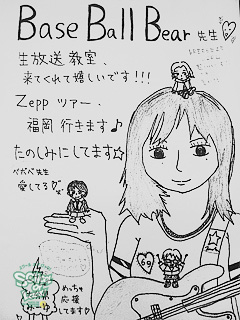 Base Ball Bear 先生
生放送教室、
来てくれて嬉しいです!!!
Zepp ツアー、
福岡 行きます♪
たのしみにしてます☆
ベボベ先生
愛してる
めっちゃ
応援
してます♡